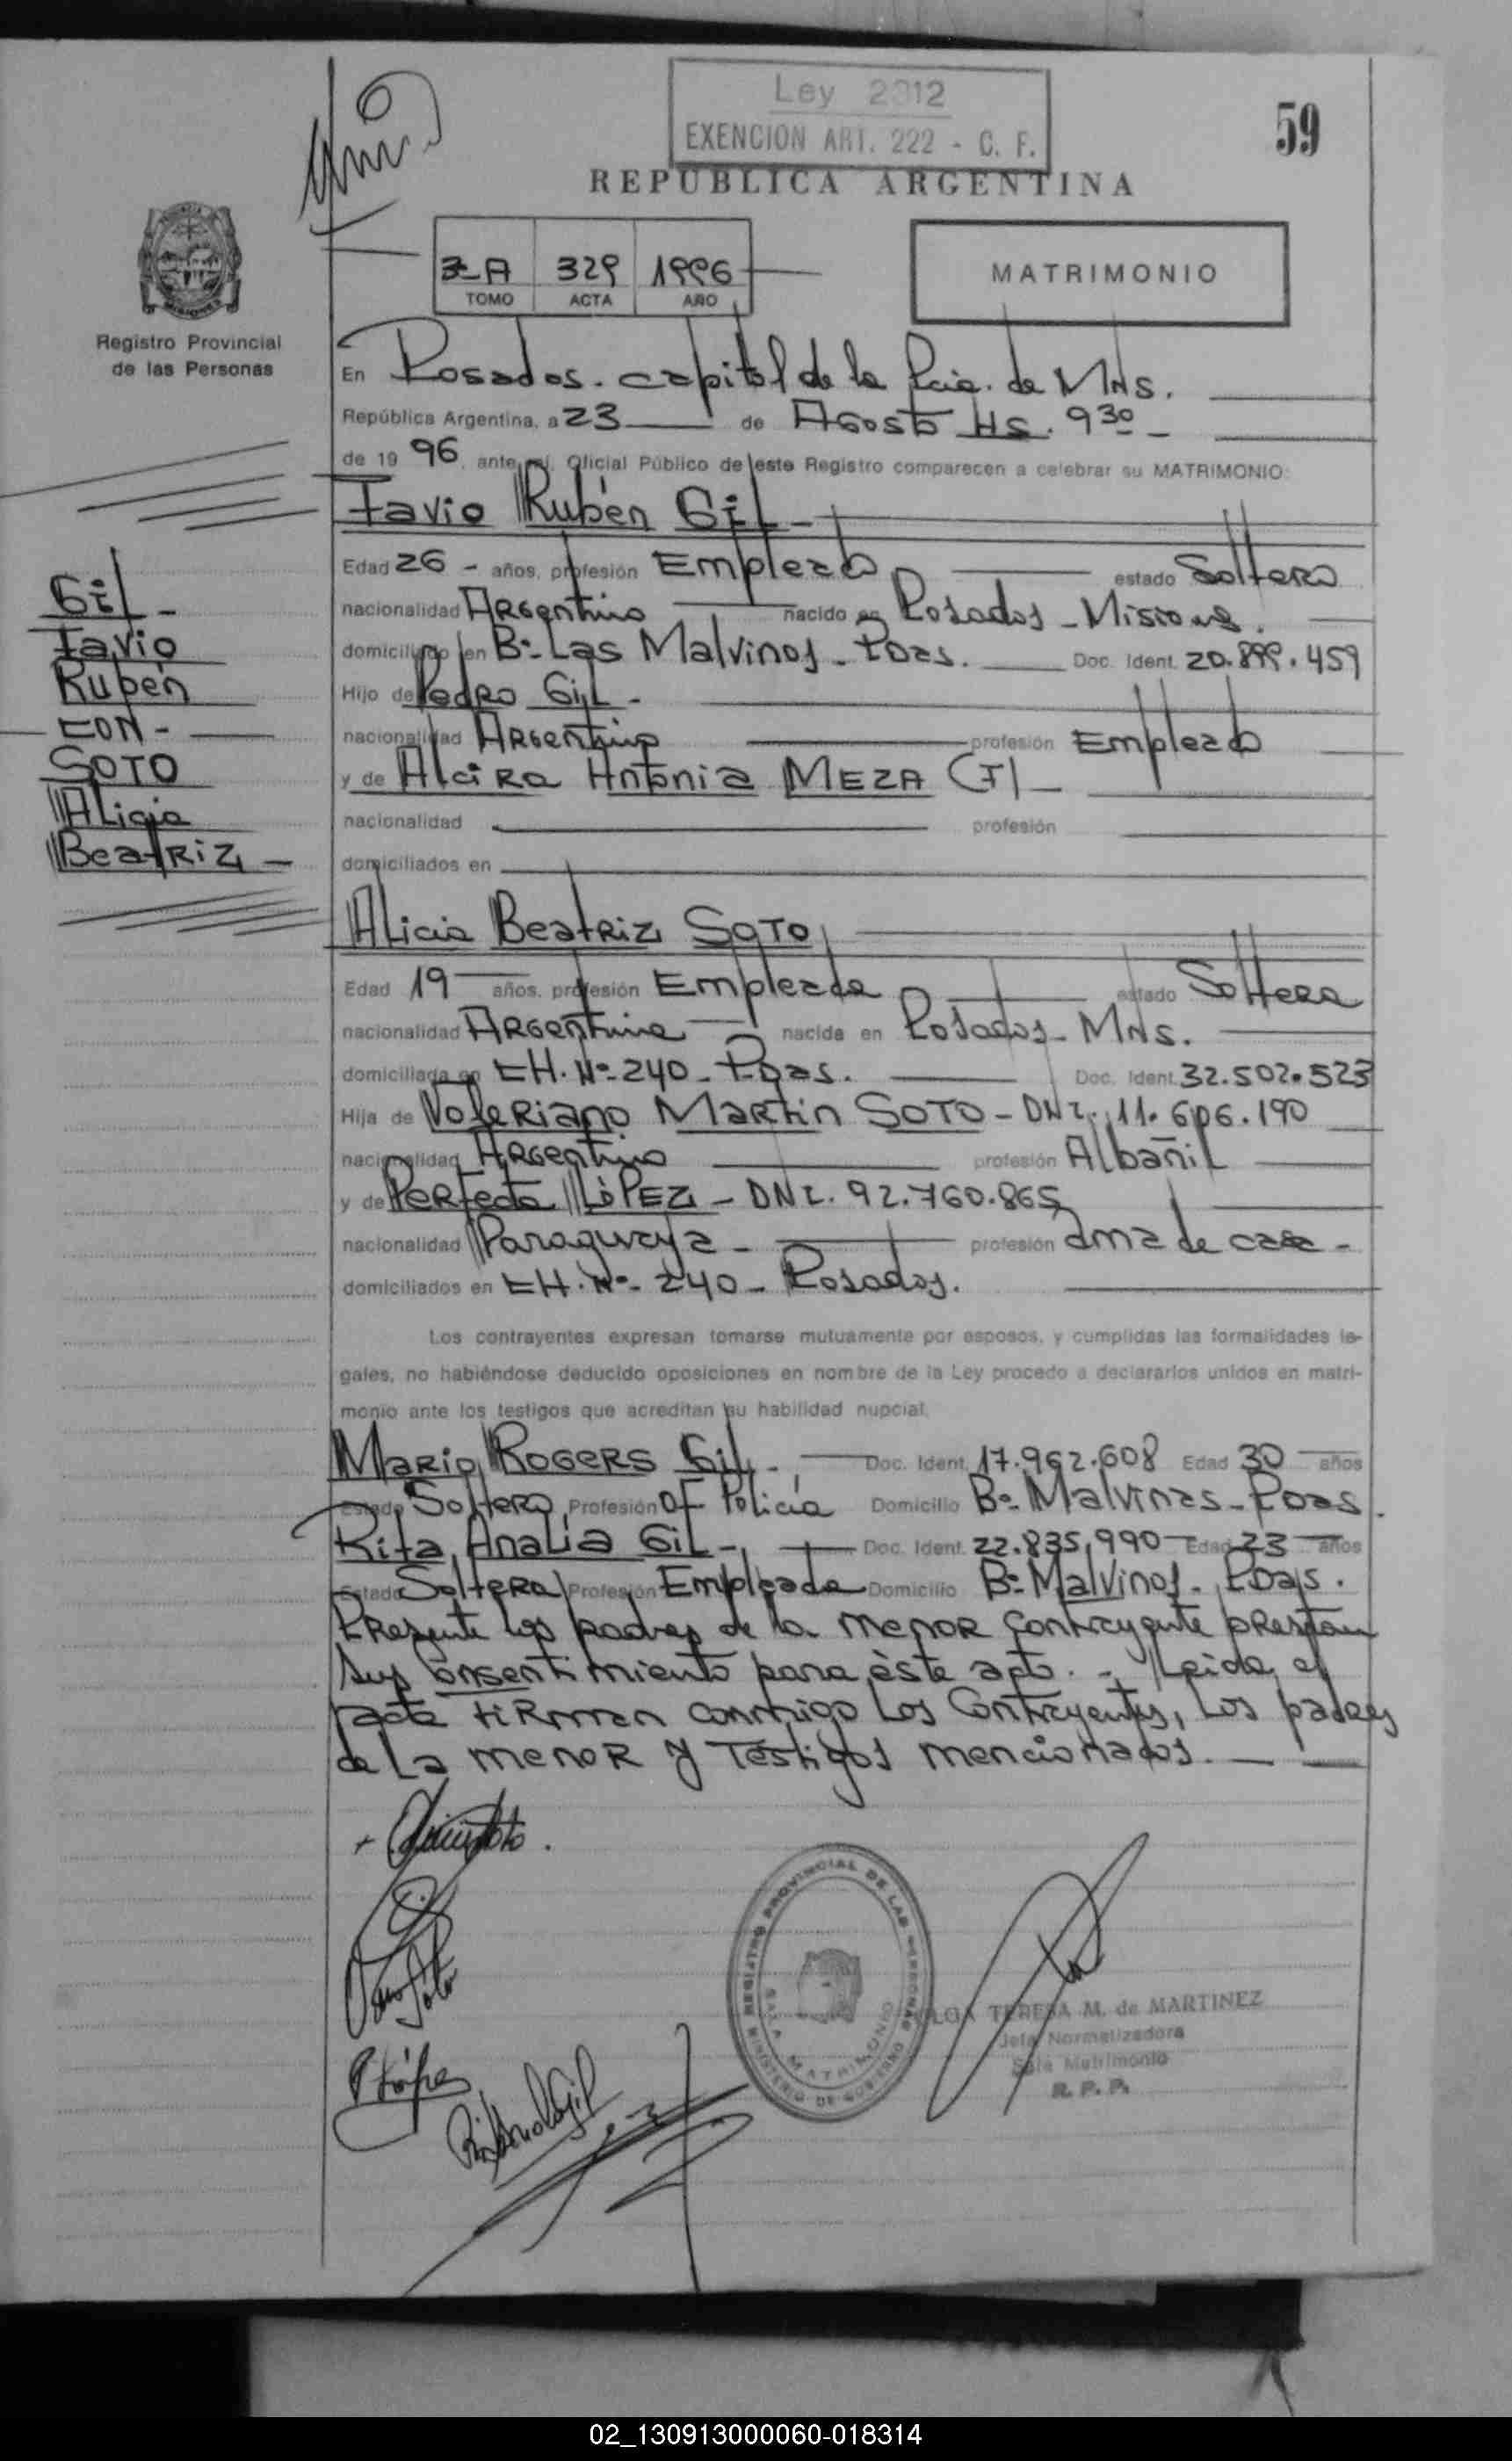 Ley 2312
EXENCION ART. 222 - C. F.
59
REPUBLICA ARGENTINA
3-A 329 1996
TOMO ACTA AÑO
MATRIMONIO
Registro Provincial
de las Personas
En Posadas. capital de la Pcia. de Mns.
República Argentina, a 23 de Agosto Hs. 9 30
de 19 96, ante mí, Oficial Público de este Registro comparecen a celebrar su MATRIMONIO:
Favio Rubén Gil -
Edad 26 - años, profesión Empleado estado Soltero
nacionalidad Argentino nacido en Posadas - Misiones.
domiciliado en Bº Las Malvinas - Pdas. Doc. Ident. 20.899.459
Hijo de Pedro Gil -
nacionalidad Argentino profesión Empleado
y de Alcira Antonia MEZA (F) -
nacionalidad profesión
domiciliados en
Gil -
Favio
Rubén
CON -
SOTO
Alicia
Beatriz -
Alicia Beatriz SOTO
Edad 19 años, profesión Empleada estado Soltera
nacionalidad Argentina nacida en Posadas - Mns.
domiciliada en CH. Nº 240 - Pdas. Doc. Ident. 32.502.523
Hija de Valeriano Martin SOTO - DNI. 11.606.190
nacionalidad Argentino profesión Albañil
y de Perfecta LÓPEZ - DNI. 92.760.865
nacionalidad Paraguaya - profesión ama de casa -
domiciliados en CH. Nº - 240 - Posadas.
Los contrayentes expresan tomarse mutuamente por esposos, y cumplidas las formalidades le-
gales, no habiéndose deducido oposiciones en nombre de la Ley procedo a declararlos unidos en matri-
monio ante los testigos que acreditan su habilidad nupcial.
Mario Rogers Gil - Doc. Ident. 17.962.608 Edad 30 años
Estado Soltero Profesión OF Policía Domicilio Bº Malvinas - Pdas.
Rita Analia Gil - Doc. Ident. 22.835.990 Edad 23 años
Estado Soltera Profesión Empleada Domicilio Bº Malvinas - Pdas.
Presente los padres de la menor contrayente prestan
sus consentimiento para èste acto. - Leida el
acta firman conmigo los Contrayentes, los padres
de la menor y Testigos mencionados.
REGISTRO PROVINCIAL DE LAS PERSONAS
SALA MATRIMONIO
MINISTERIO DE GOBIERNO
OLGA TERESA M. de MARTINEZ
Jefa Normalizadora
Sala Matrimonio
R. P. P.
02_130913000060-018314